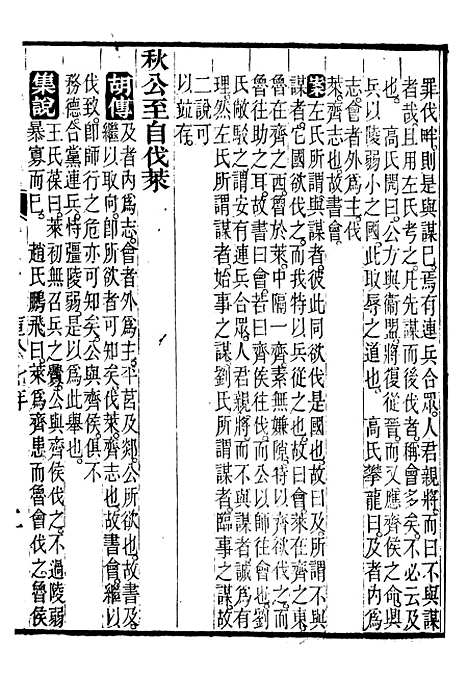 罪伐畔則是與謀巳焉有連兵合眾人君親將而曰不與謀
者哉且用左氏考之凡先謀而後伐者稱會多矣不必云及
也 高氏閌曰公方與衞盟將復從晉而又應齊侯之命興
兵以陵弱小之國此取辱之道也 高氏攀龍曰及內爲
志會者外爲主伐
萊齊志也故書會
案左氏所謂與謀者彼此同欲伐是國也故曰及所謂不與
謀者它國欲伐之而我特以兵從之也故曰會萊在齊之東
魯在齊之西魯於萊中隔一齊素無嫌隙特以齊欲伐之而
魯往助之耳故書曰會若曰齊侯往伐而公以師往會也劉
氏敞駁之謂安有連兵合眾人君親將而不與謀者誠爲有
理然左氏所謂謀者始事之謀劉氏所謂謀者臨事之謀故
二說可
以竝存
秋公至自伐萊
胡傳及者內爲志會者外爲主平莒及郯公所欲也故書及
繼以取向卽所欲者可知矣伐萊齊志也故書會繼以
伐致卽師行之危亦可知矣公與齊侯俱不
務德合黨連兵恃彊陵弱是以爲此舉也
集說王氏葆曰萊初無召兵之釁公與齊侯伐之不過陵弱
暴寡而巳 趙氏鵬飛曰萊爲齊患而魯會伐之魯侯